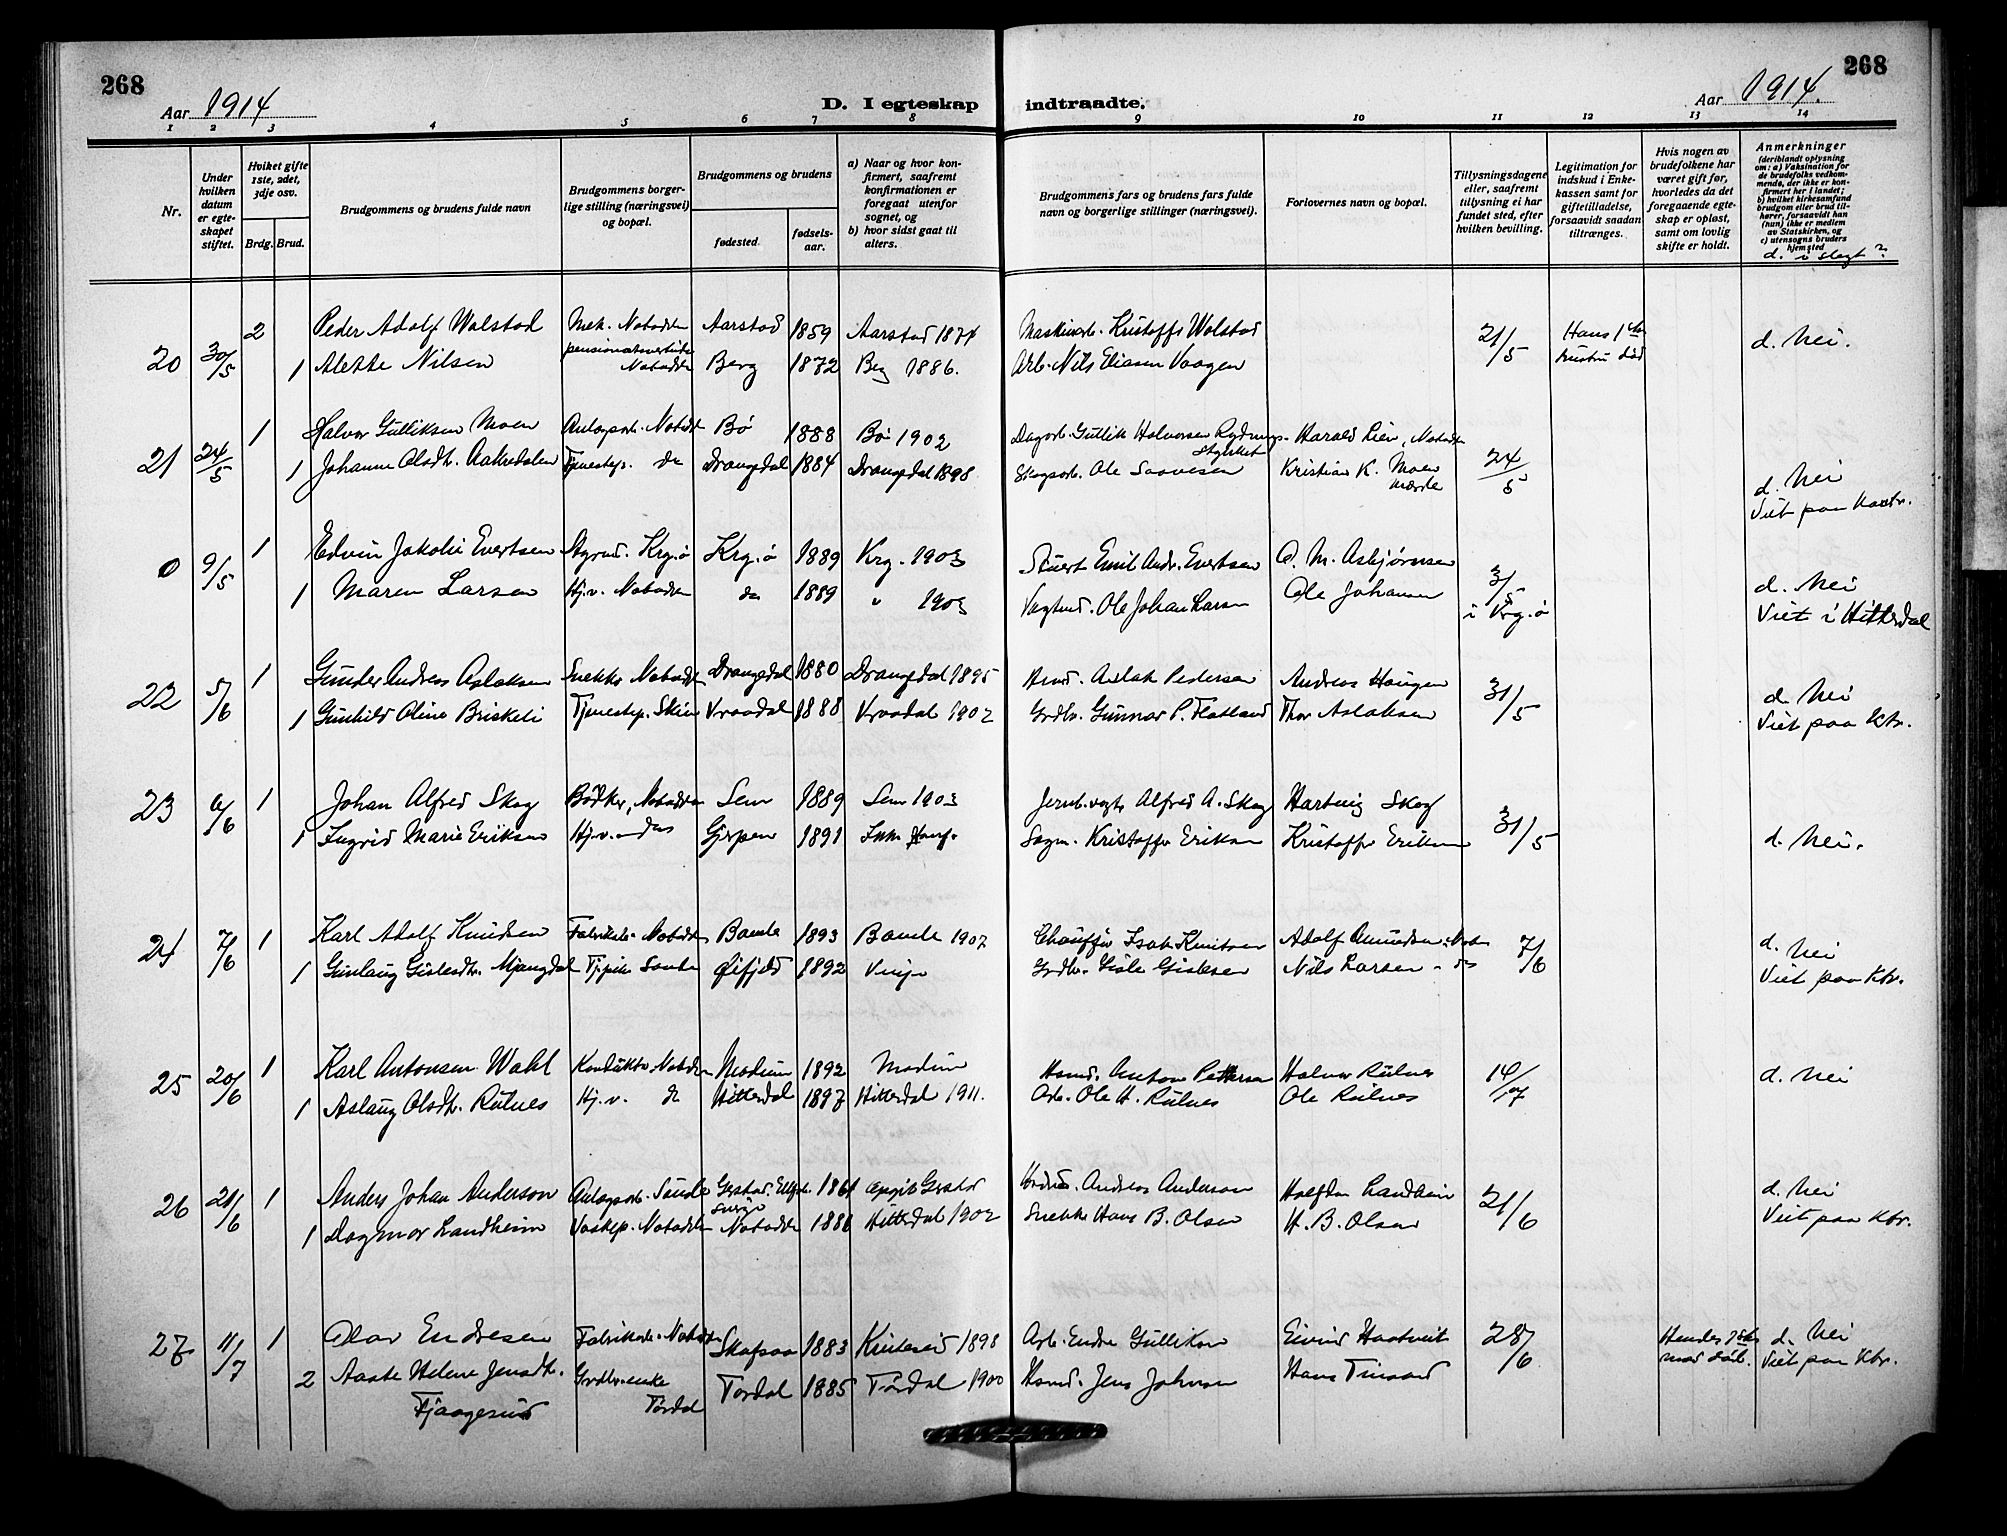 268
Aar 1914
D. I egteskap
indtraadte.
Aar 1914.
268
1 2 3 4 5 6 7 8 9 10 11 12 13 14
Nr.
Under hvilken datum er egteskapet stiftet.
Hviket gifte 1ste, 2det, 3dje osv.
Brdg. Brud.
Brudgommens og brudens fulde navn
Brudgommens borgerlige stilling (næringsvei) og bopæl.
Brudgommens og brudens
fødested.
fødselsaar.
a) Naar og hvor konfirmert, saafremt konfirmationen er foregaat utenfor sognet, og
b) hvor sidst gaat til alters.
Brudgommens fars og brudens fars fulde navn og borgerlige stillinger (næringsvei).
Forlovernes navn og bopæl.
Tillysningsdagene eller, saafremt tillysning ei har fundet sted, efter hvilken bevilling.
Legitimation for indskud i Enkekassen samt for giftetilladelse, forsaavidt saadan tiltrænges.
Hvis nogen av brudefolkene har været gift før, hvorledes da det foregaaende egteskap er opløst, samt om lovlig skifte er holdt.
Anmerkninger
(deriblandt oplysning om: a) Vaksination for de brudefolks vedkommende, der ikke er konfirmert her i landet; b) hvilket kirkesamfund brudgom eller brud tilhører, forsaavidt han (hun) ikke er medlem av Statskirken, og c) utensogns bruders hjemsted
d. i slegt?
20 30/5 2 Peder Adolf Wolstad Mek. Notodden Aarstad 1859 Aarstad 1874 Kristoffe Wolstad 21/5 Hans 1ste hustru død d. Nei.
1 Alette Nilsen Notodden Berg 1872 Berg 1886. Arb. Nils Eliasen Vaagen
21 24/5 1 Halvor Gulliksen Moen Notodd Bø 1888 Bø 1902 Dagarb. Gullik Halvorsen Harald Lien, Notodden 24/5
1 Johanne Olsdtr. Aakredalen Tjenestep. do Drangedal 1884 Drangedal 1898 Skogsarb. Ole Saavesen Kristian K. Moen d. Nei
Viet paa kontr.
0 9/5 1 Edvin Jakobi Evertsen Styrmd. Krg.ø Krg.ø 1889 Krg. 1903 Stuert Emil Andr. Evertsen O. M. Asbjørnsen 3/5 i Krg.ø d. Nei
1 Maren Larsen Hj.v. Notodden do 1889 " 1903 Vagtmd. Ole Johan Larsen Ole Johansen Viet i Hitterdal
22 5/6 1 Gunder Andreas Aslaksen Snekker Notodden Drangedal 1880 Drangedal 1895 Aslak Pedersen Andreas Haugen 31/5 d. Nei
1 Gunhild Oline Brisketi Tjenestep. Skien Vraadal 1888 Vraadal 1902 Grdbr. Gunnar P. Flatland Thor Aslaksen Viet paa Ktr.
23 6/6 1 Johan Alfred Skog Bødker, Notodden Sem 1889 Sem 1903 Jernb.vogt Alfred A. Skog Hartvig Skog 31/5
1 Ingrid Marie Eriksen Hj.v. Gjerpen 1891 Kristoffer Eriksen Kristoffer Eriksen d. Nei.
24 7/6 1 Karl Adolf Knudsen Fabrikarb. Notodden Bamle 1893 Bamle 1907 Chauffør Isak Knutsen Adolf Amundsen 7/6 d. Nei
1 Gunlaug Gislesdtr. Mjaugdal 1892 Vinje Grdbr. Gisle Gislesen Nils Larsen - do Viet paa Ktr.
25 20/6 1 Karl Antonsen Wahl Konduktør Notodden Modum 1892 Modum Anton Pettersen Halvor Rulnes 14/7 d. Nei
1 Aslaug Olsdtr. Rulnes Hj.v. do Hitterdal 1897 Hitterdal 1911. Arb. Ole H. Rulnes Ole Rulnes
26 21/6 1 Anders Johan Anderson Gerstad 1861 Andreas Anderson Halfdan Landheim 21/6 d. Nei
1 Dagmar Landheim Vaskep. Notodden Notodden 1886 Hitterdal 1902 Snekker Hans B. Olsen H. B. Olsen Viet paa Ktr.
27 11/7 1 Olav Endresen Fabrikarb. Notodden Skafsaa 1883 Kviteseid 1898 Arb. Endre Gulliksen Eivind Haatveit 28/6 Hendes 1ste mand død. d. Nei
2 Aaste Helene Jensdtr. Fjaagesund Grdbr.enke Tørdal Tørdal 1885 Tørdal 1900 Jens Johnsen Hans Tinsand Viet paa Ktr.